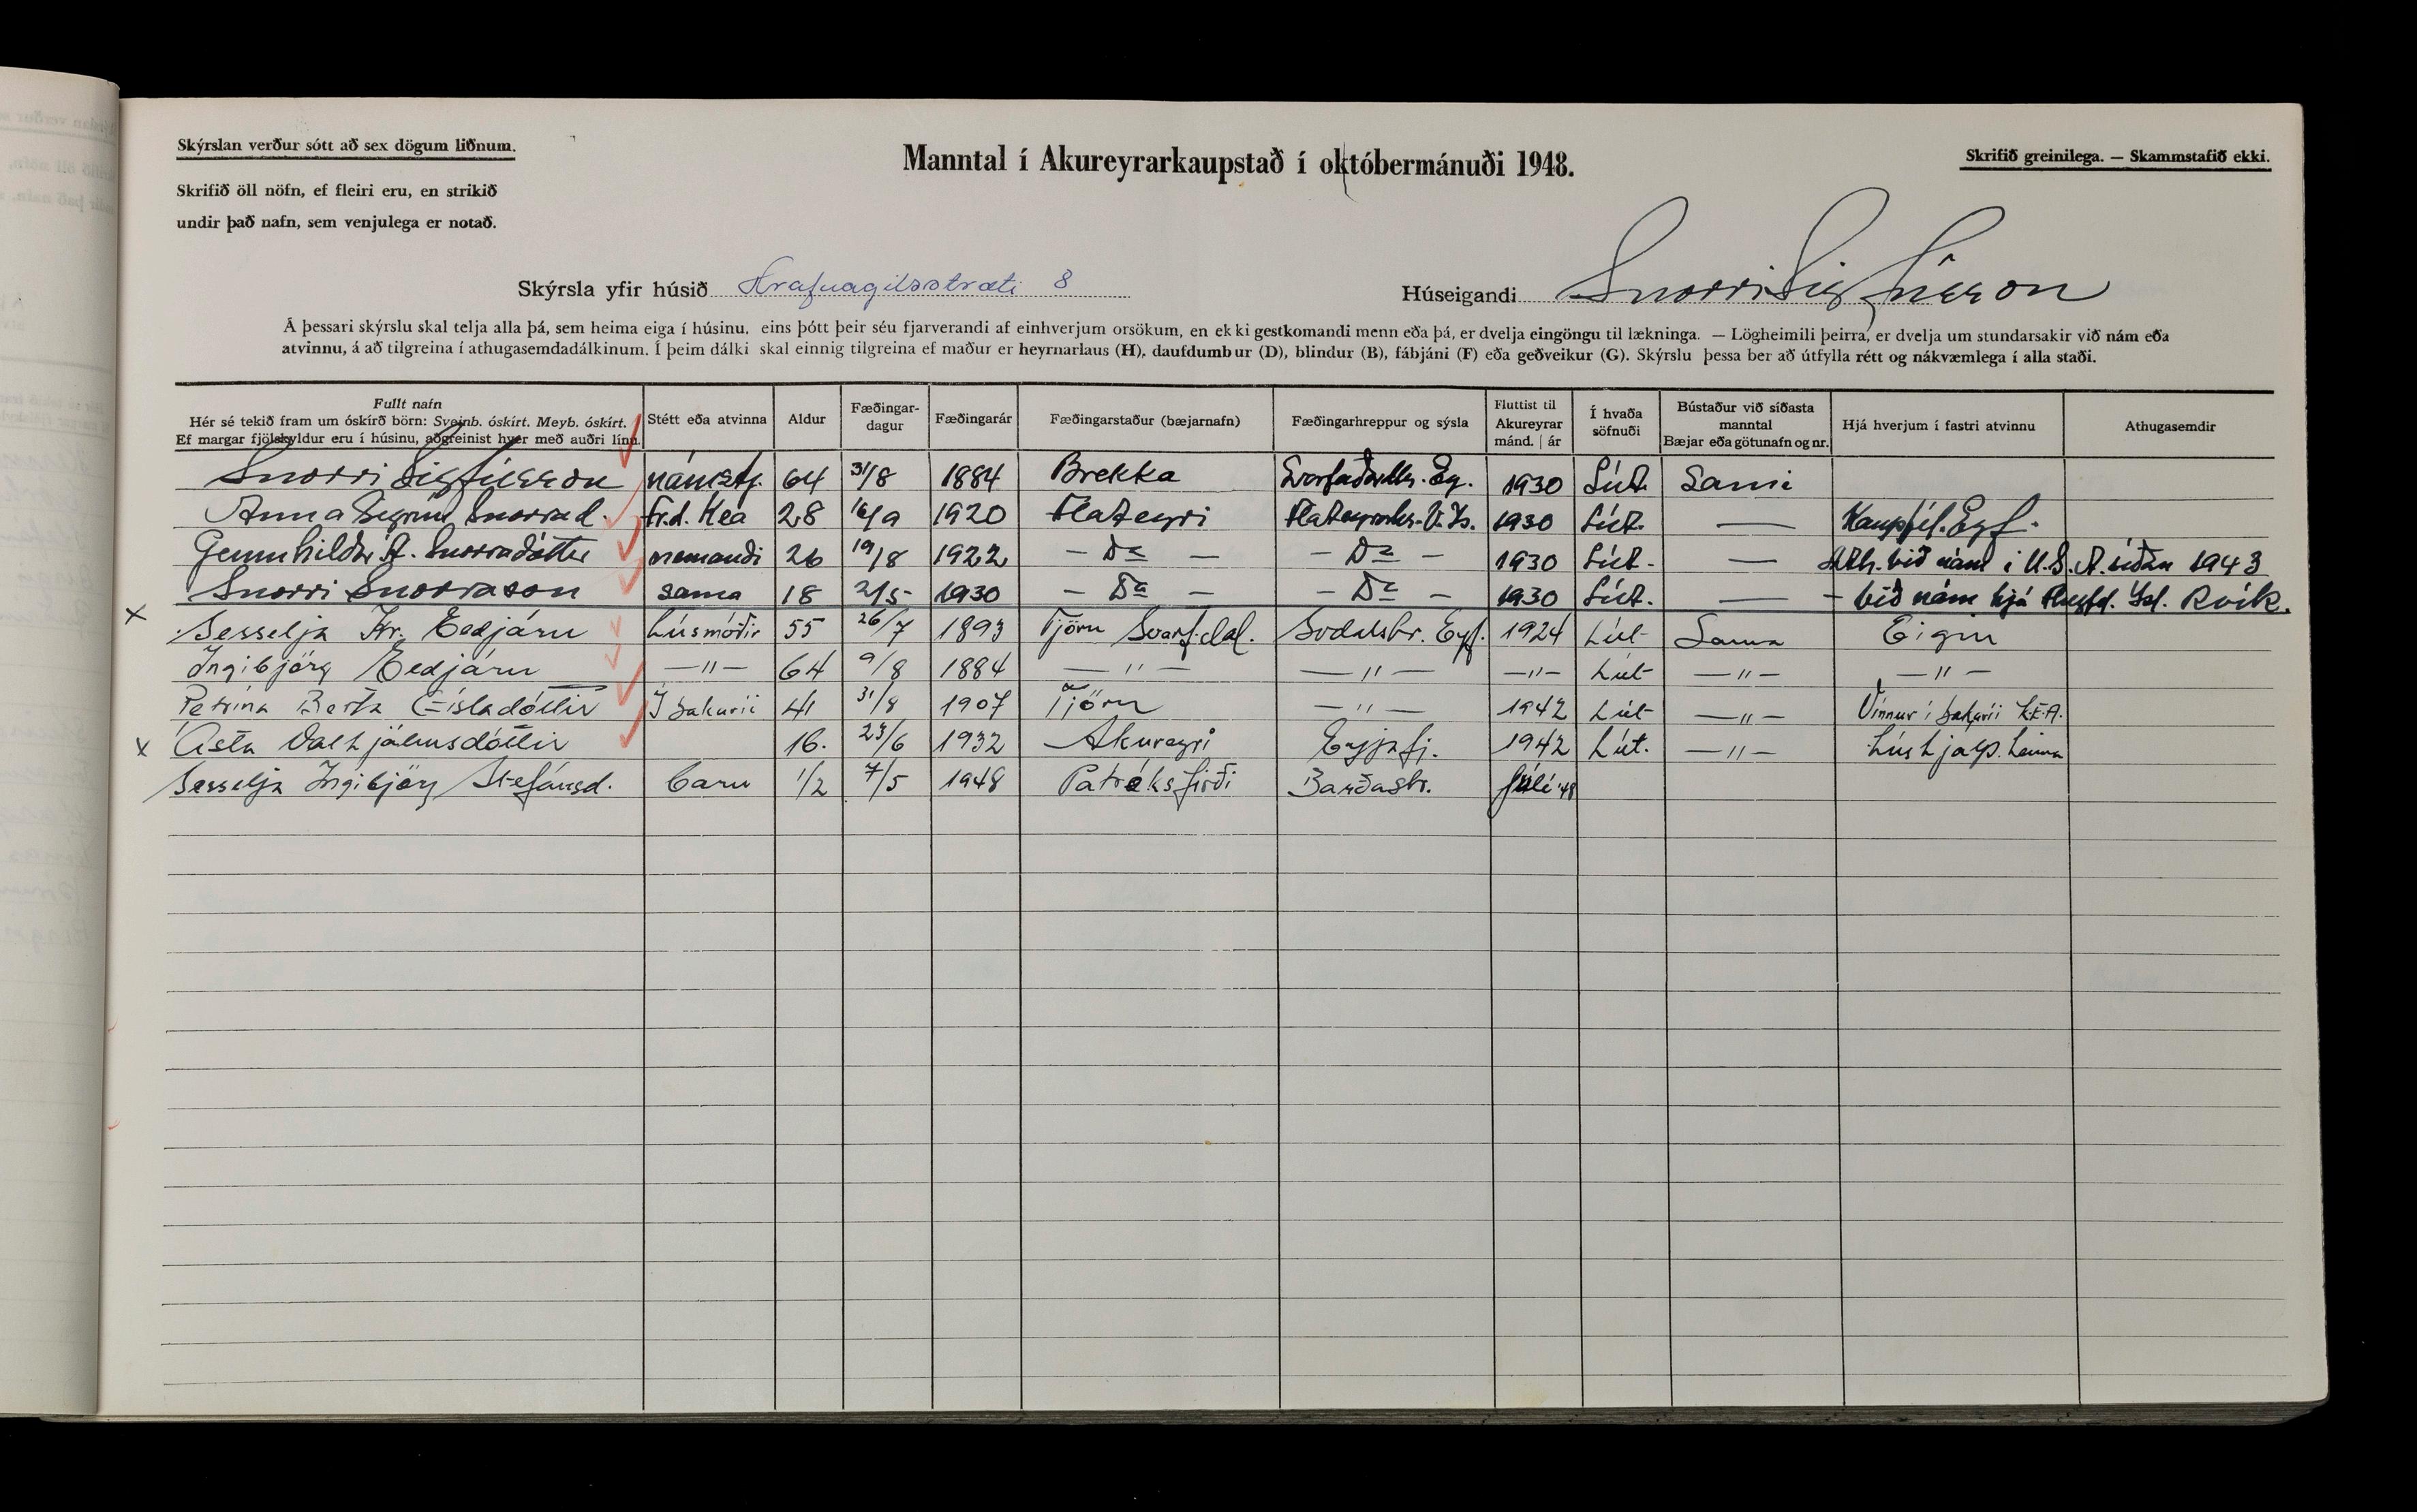 Skýrslan verður sótt að sex dögum liðnum.
Skrifið öll nöfn, ef fleiri eru, en strikið
undir það nafn, sem venjulega er notað.
Manntal í Akureyrarkaupstað í októbermánuði 1948.
Skrifið greinilega. — Skammstafið ekki.
Skýrsla yfir húsið Hrafnagilsstræti 8
Húseigandi Snorri Sigfússon
Á þessari skýrslu skal telja alla þá, sem heima eiga í húsinu, eins þótt þeir séu fjarverandi af einhverjum orsökum, en ekki gestkomandi menn eða þá, er dvelja eingöngu til lækninga. — Lögheimili þeirra, er dvelja um stundarsakir við nám eða
atvinnu, á að tilgreina í athugasemdadálkinum. Í þeim dálki skal einnig tilgreina ef maður er heyrnarlaus (H), daufdumbur (D), blindur (B), fábjáni (F) eða geðveikur (G). Skýrslu þessa ber að útfylla rétt og nákvæmlega í alla staði.
Fullt nafn
Hér sé tekið fram um óskírð börn: Sveinb. óskírt. Meyb. óskírt.
Ef margar fjölskyldur eru í húsinu, aðgreinist hver með auðri línu.
Stétt eða atvinna
Aldur
Fæðingar-
dagur
Fæðingarár
Fæðingarstaður (bæjarnafn)
Fæðingarhreppur og sýsla
Fluttist til
Akureyrar
mánd. | ár
Í hvaða
söfnuði
Bústaður við síðasta
manntal
Bæjar eða götunafn og nr.
Hjá hverjum í fastri atvinnu
Athugasemdir
Snorri Sigfússon námsstj. 64 31/8 1884 Brekka Svarfaðardhr. Ey. 1930 Lút. Sami
Anna Sigrún Snorrad. fr.d. Kea 28 1920 Flateyri Flateyrarhr. V. Ís. 1930 Lút. — Kaupfél. Eyf.
Gunnhildur A. Snorradóttir nemandi 26 19/8 1922 — Do — — Do — 1930 Lút. — Ath. við nám í U.S.A. síðan 1943
Snorri Snorrason sama 18 2/5 1930 — Do — — Do — 1930 Lút. — - við nám hjá Flugfél. Ísl. Rvík.
x Sesselja Kr. Eldjárn húsmóðir 55 26/7 1893 Tjörn Svarf.dal. Svdalshr. Eyf. 1924 Lút- Sama Eigin
Ingibjörg Eldjárn —"— 64 9/8 1884 —"— —"— —"— Lút- —"— —"—
Petrína Berta Gísladóttir Í bakaríi 41 31/8 1907 Tjörn —"— 1942 Lút- —"— Vinnur í bakaríi K.E.A.
x Ásta Valhjálmsdóttir 16. 23/6 1932 Akureyri Eyjafj. 1942 Lút. —"— húshjálp. heima
Sesselja Ingibjörg Stefánsd. barn 1/2 7/5 1948 Patreksfirði Barðastr. júlí '48